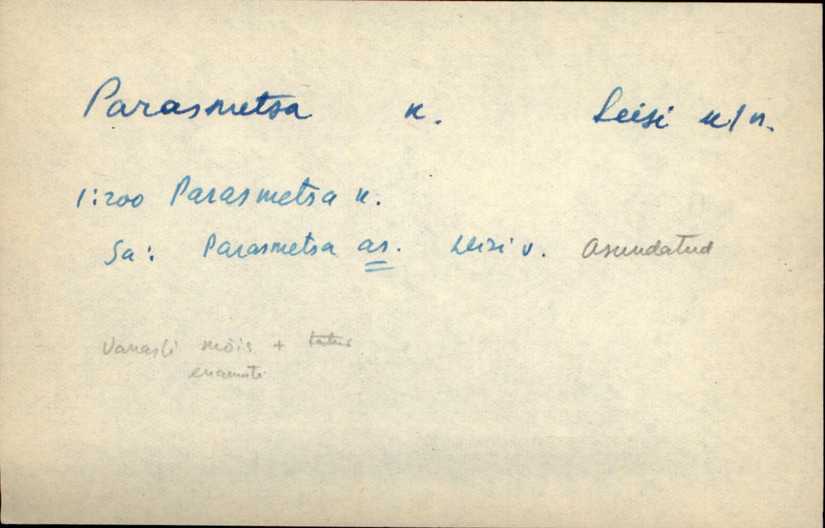 Parasmetsa k. Leisi k/n.
1:200 Parasmetsa k.
Sa: Parasmetsa as. Leisi v. Asundatud
Vanasti mõis +